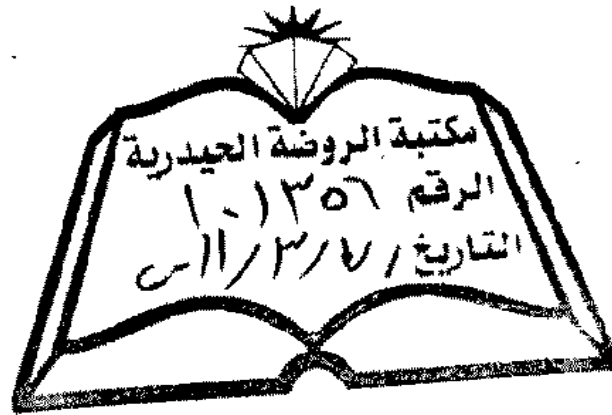 مكتبة الروضة الحيدرية
الرقم ١٠١٣٥٦
التاريخ